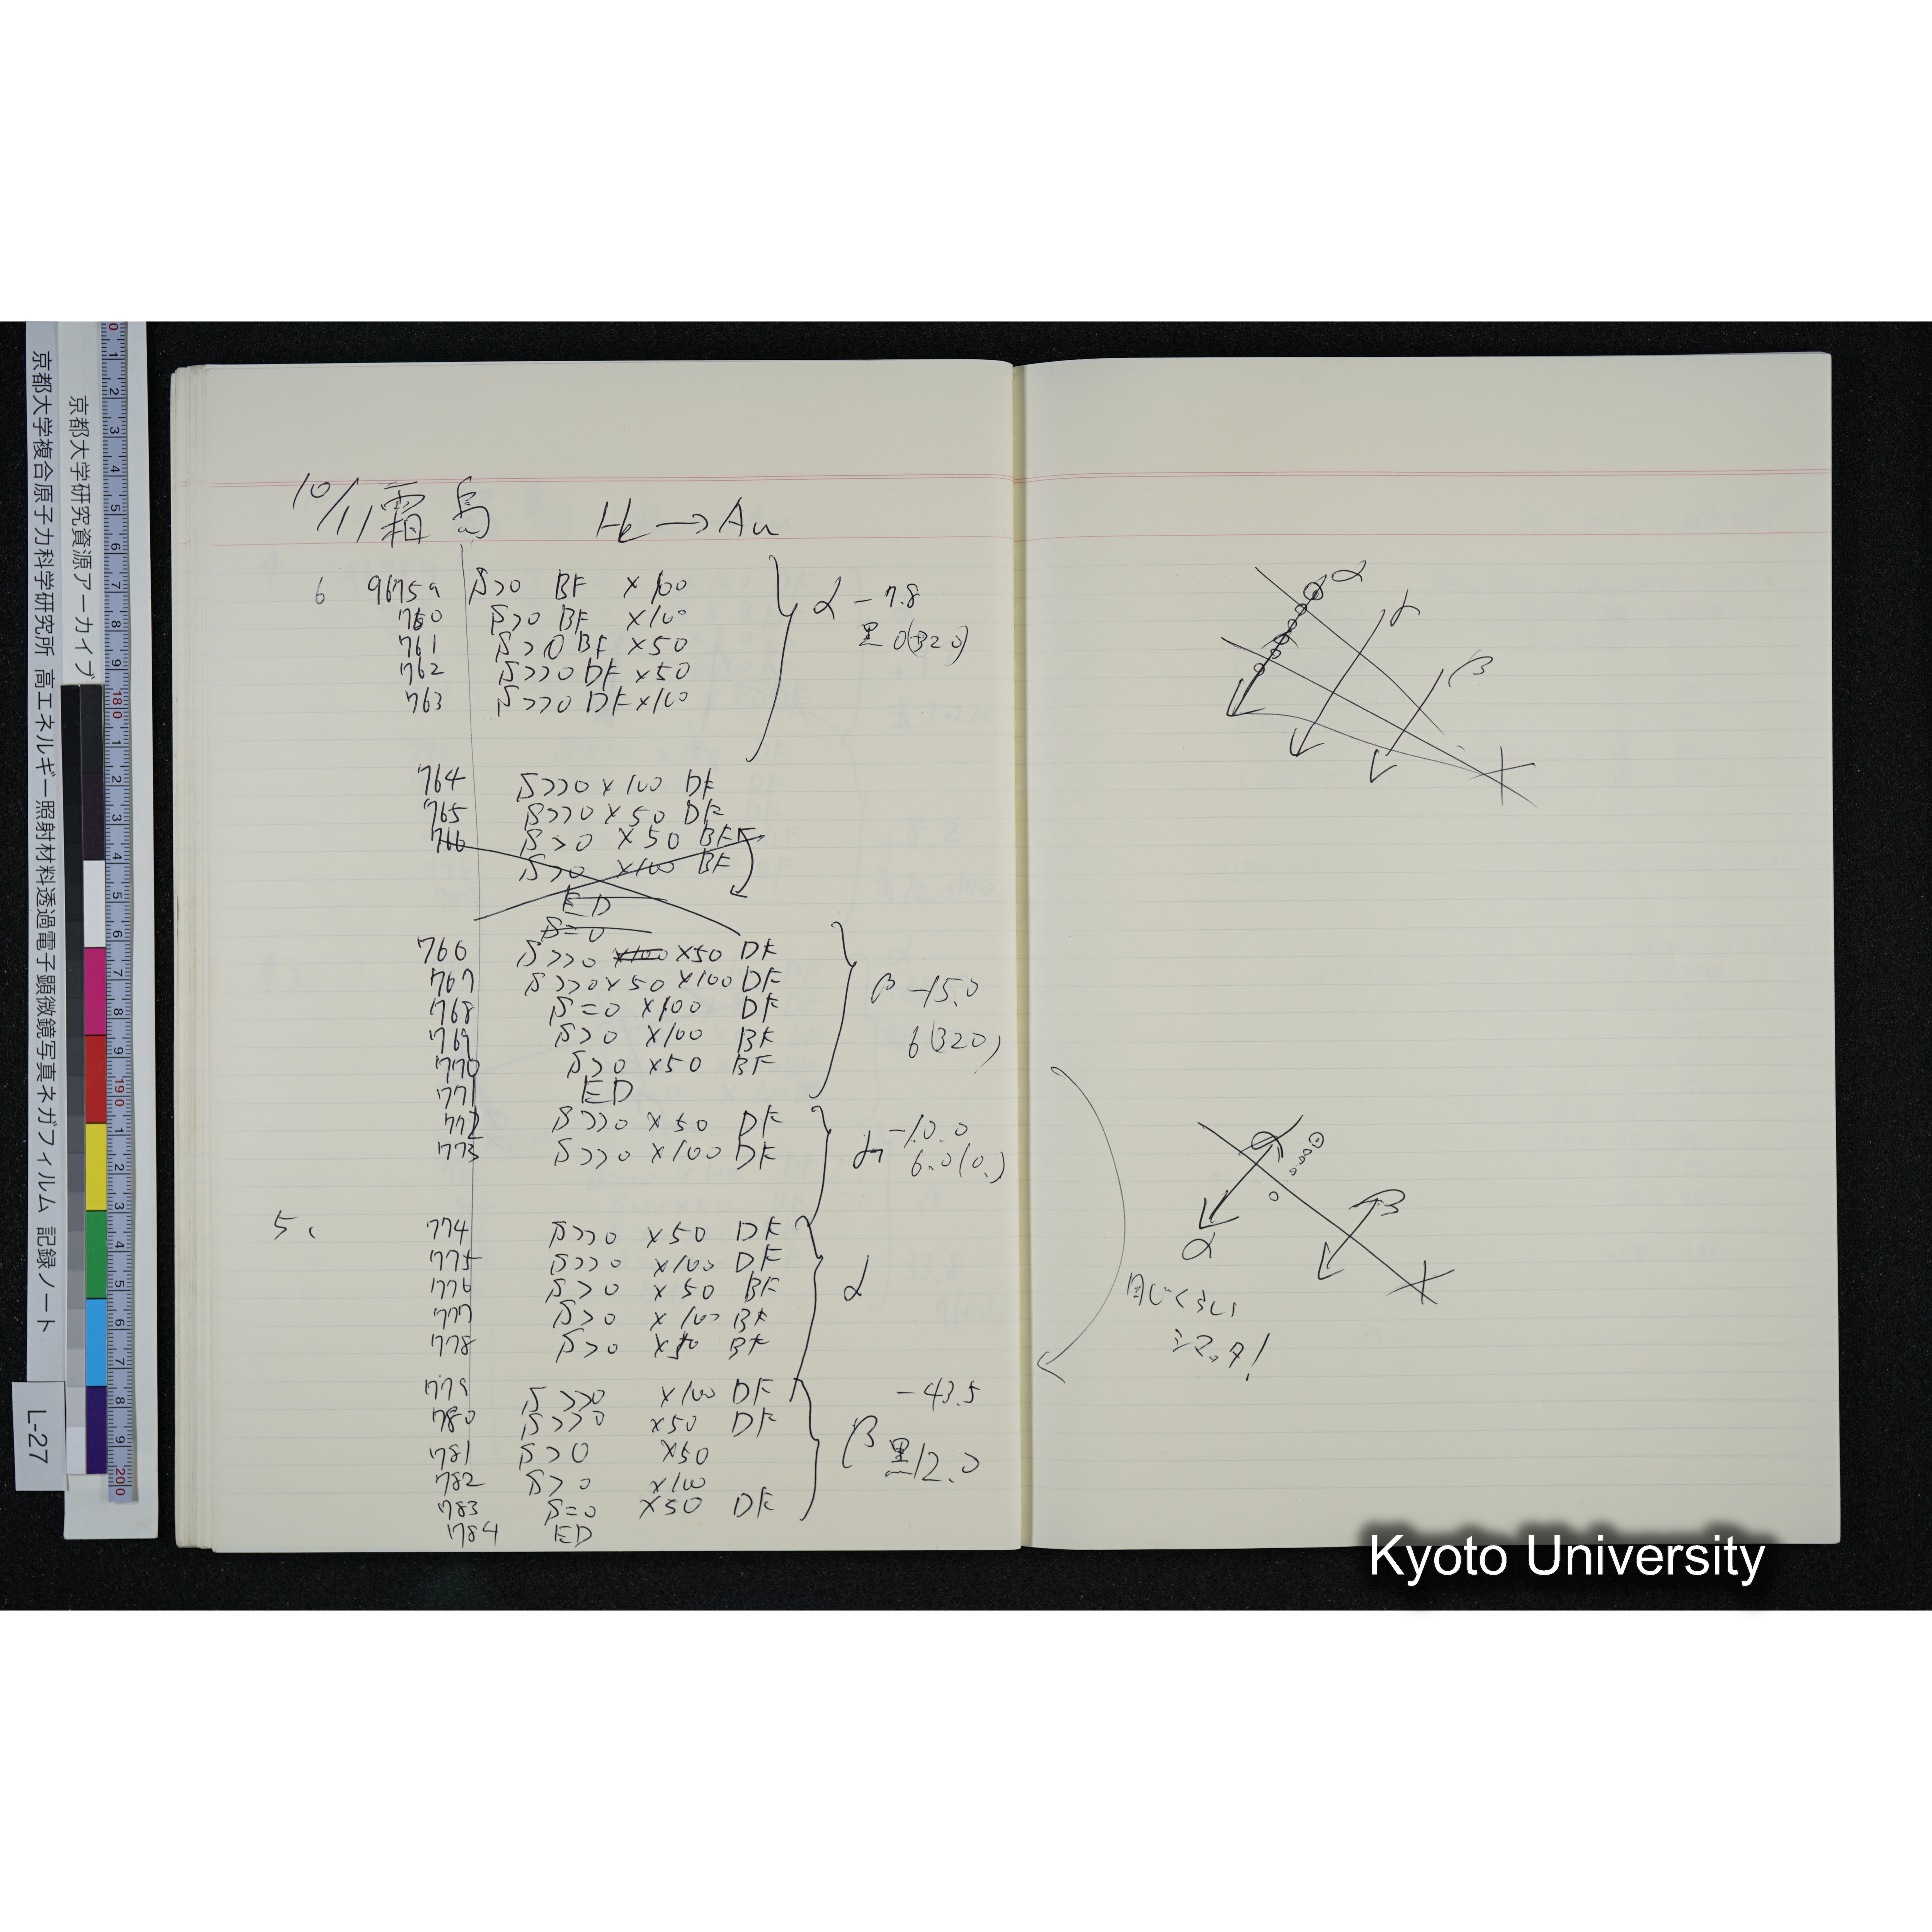 10/11 霜鳥 He → Au
6 96759 S>0 BF ×100
760 S>0 BF ×100
761 S>0 BF ×50
762 S>>0 DF ×50
763 S>>0 DF ×100
α -7.8
黒 0(320)
764 S>>0 ×100 DF
765 S>>0 ×50 DF
766 S>0 ×50 BF
S>0 ×100 BF
ED
S=0
766 S>>0 ×100 ×50 DF
767 S>>0 ×50 ×100 DF
768 S=0 ×100 DF
769 S>0 ×100 BF
770 S>0 ×50 BF
771 ED
β -15.0
6(320)
772 S>>0 ×50 DF
773 S>>0 ×100 DF
-10.0
6.0(0.)
5.
774 S>>0 ×50 DF
775 S>>0 ×100 DF
776 S>0 ×50 BF
777 S>0 ×100 BF
778 S>0 ×50 BF
α
779 S>>0 ×100 DF
780 S>>0 ×50 DF
781 S>0 ×50
782 S>0 ×100
783 S=0 ×50 DF
784 ED
-43.5
β 黒12.0
α
γ
β
α
β
同じくらい
シマッタ!
京都大学研究資源アーカイブ
京都大学複合原子力科学研究所 高エネルギー照射材料透過電子顕微鏡写真ネガフィルム 記録ノート
L-27
Kyoto University